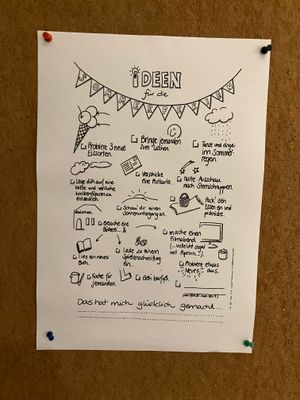 IDEEN
für die
SOMMERFERIEN
Probiere 3 neue
Eissorten.
Bringe jemanden
zum Lachen.
Tanze und singe
im Sommer-
regen.
Lege dich auf eine
Wiese und
Verschicke
eine Postkarte.
Halte Ausschau
nach Sternschnuppen.
Schau dir einen
Sonnenuntergang an.
Pack den
ein und
picknicke.
Besuche eine
Lies ein neues
Buch.
Lade zu einem
ein.
Mache einen
Filmabend
(vielleicht sogar
mit Popcorn?).
Koche für
jemanden.
Geh barfuß.
Probiere etwas
Neues aus.
Das hat mich glücklich gemacht...